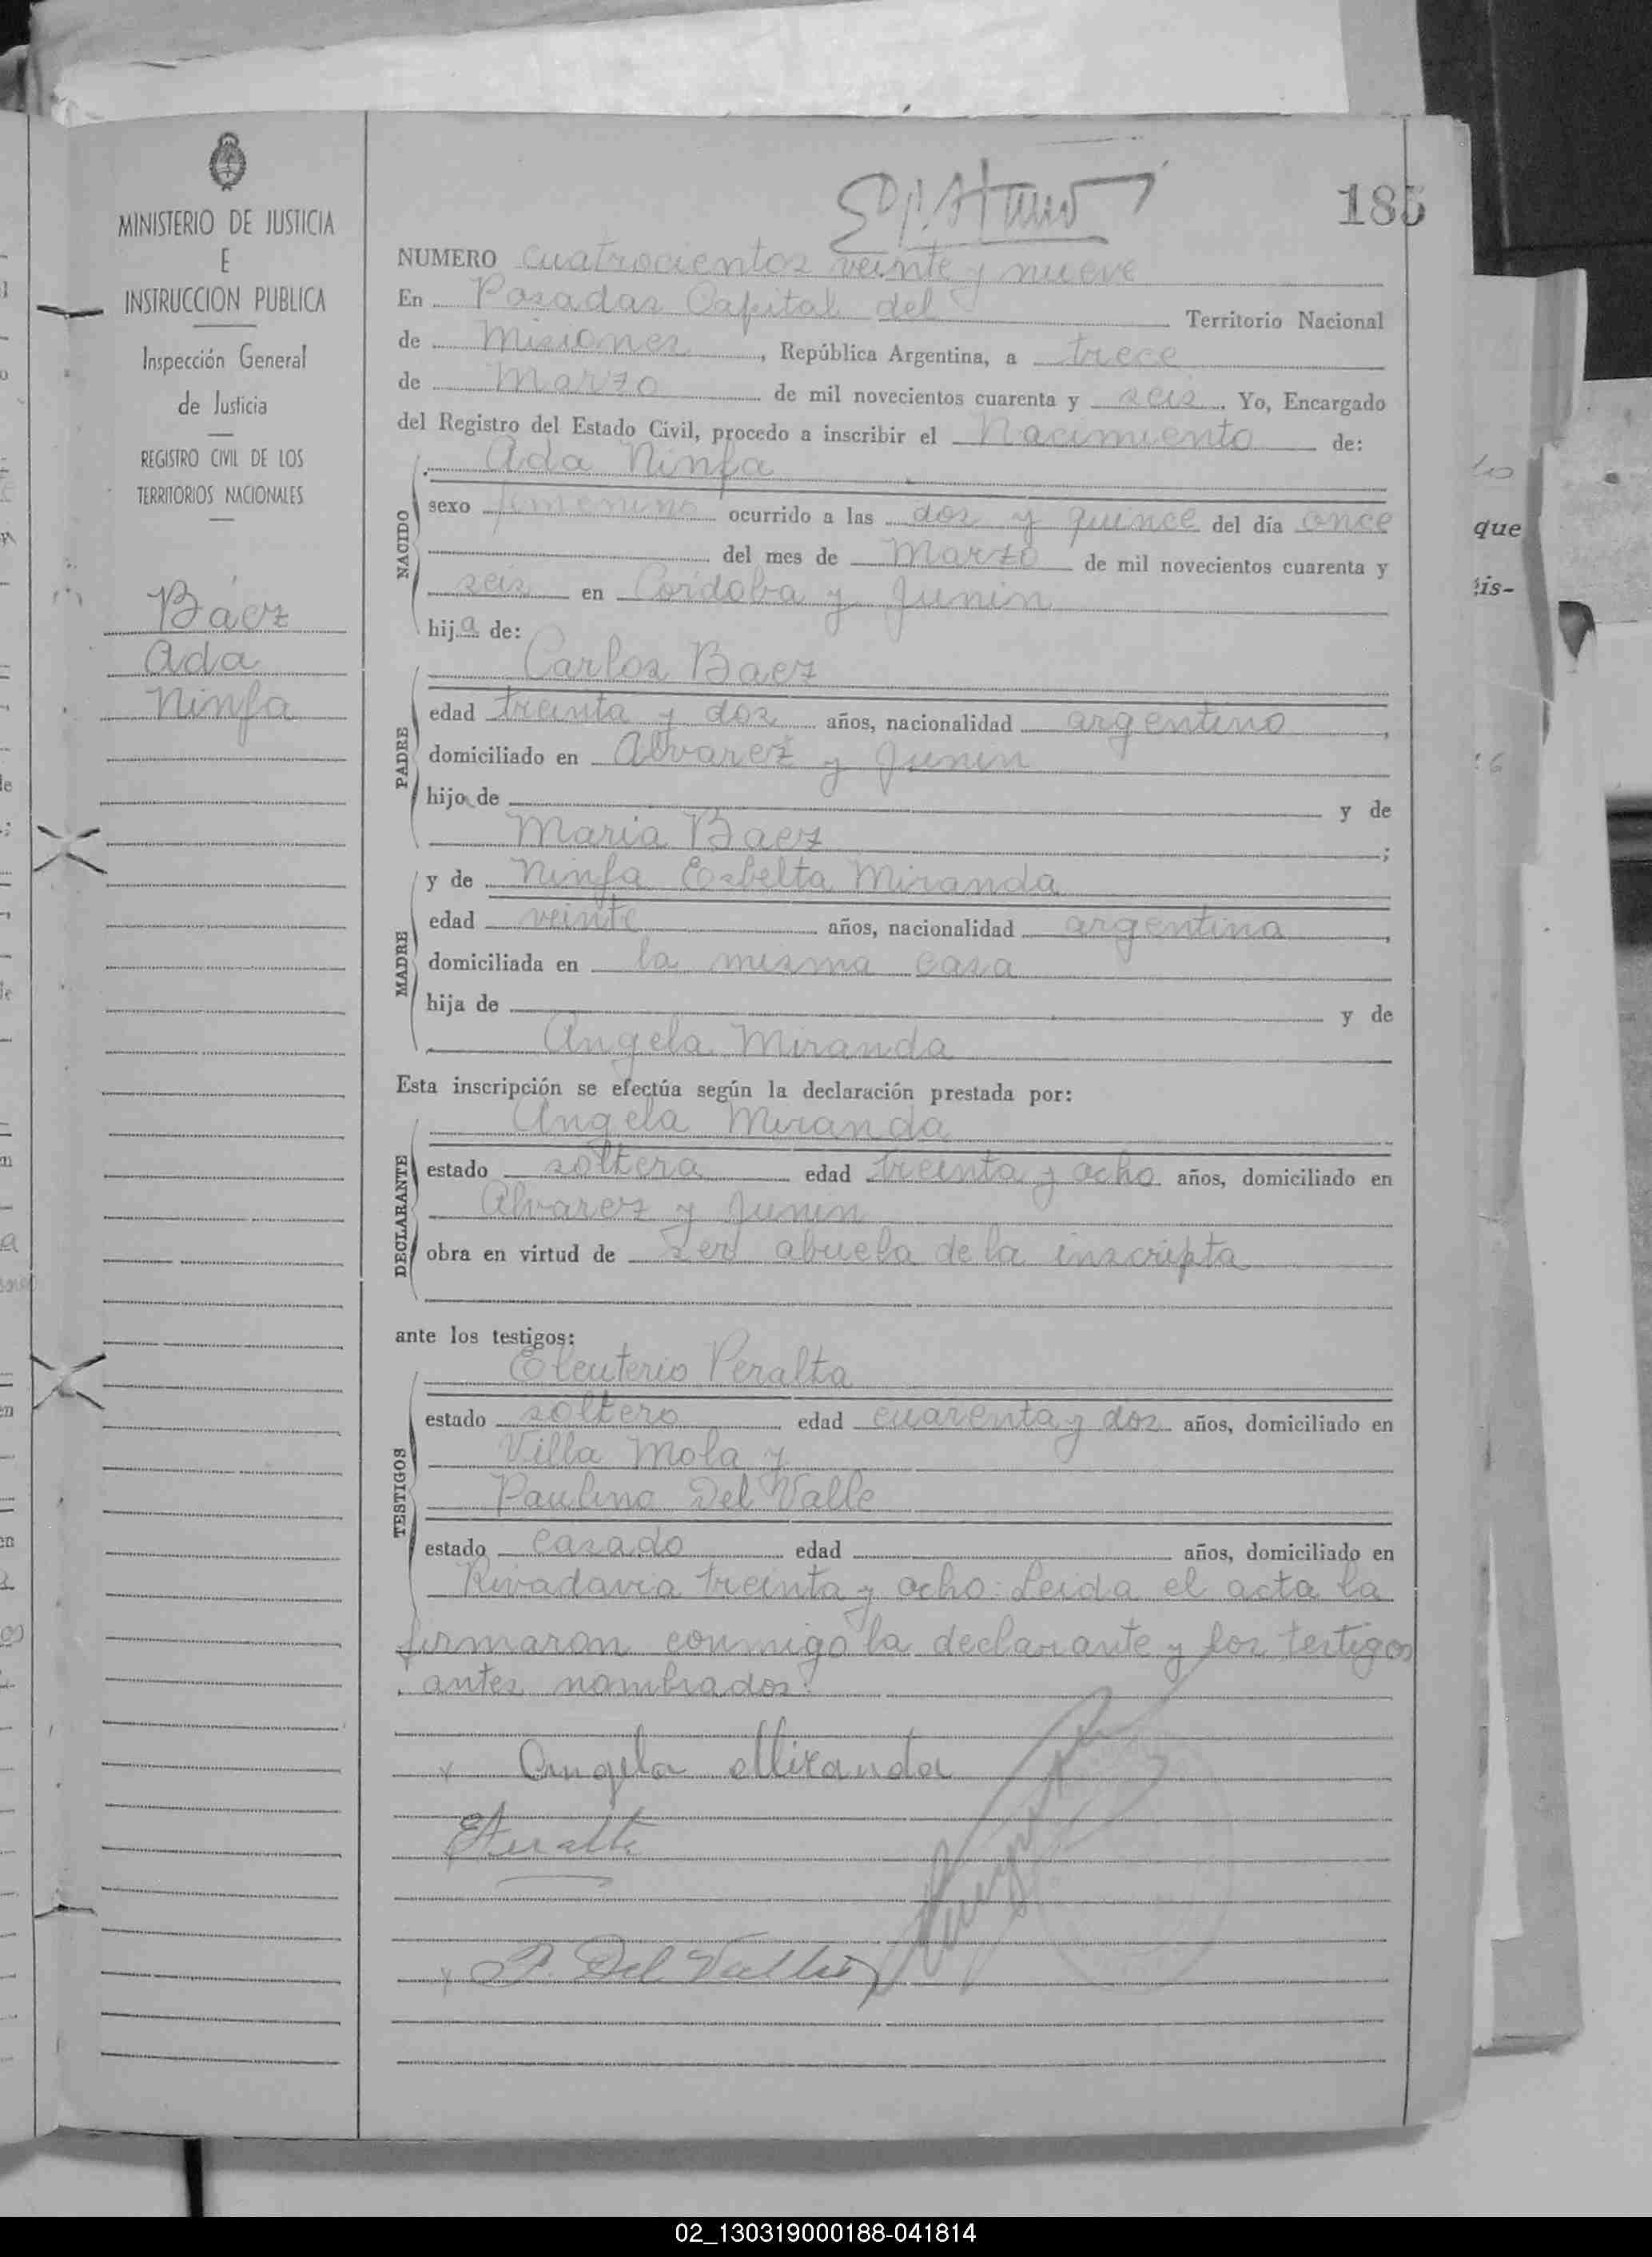 185
MINISTERIO DE JUSTICIA
E
INSTRUCCION PUBLICA
Inspección General
de Justicia
REGISTRO CIVIL DE LOS
TERRITORIOS NACIONALES
Báez
Ada
Ninfa
NUMERO cuatrocientos veinte y nueve
En Posadas Capital del Territorio Nacional
de Misiones, República Argentina, a trece
de Marzo de mil novecientos cuarenta y seis. Yo, Encargado
del Registro del Estado Civil, procedo a inscribir el Nacimiento de:
NACIDO
Ada Ninfa
sexo femenino ocurrido a las dos y quince del día once
del mes de Marzo de mil novecientos cuarenta y
seis en Córdoba y Junin
hija de:
PADRE
Carlos Baez
edad treinta y dos años, nacionalidad argentino,
domiciliado en Alvarez y Junin
hijo de y de
Maria Baez;
MADRE
y de Ninfa Esbelta Miranda
edad veinte años, nacionalidad argentina,
domiciliada en la misma casa
hija de y de
Angela Miranda
Esta inscripción se efectúa según la declaración prestada por:
DECLARANTE
Angela Miranda
estado soltera edad treinta y ocho años, domiciliado en
Alvarez y Junin
obra en virtud de ser abuela de la inscripta
ante los testigos:
TESTIGOS
Eleuterio Peralta
estado soltero edad cuarenta y dos años, domiciliado en
Villa Mola y
Paulino Del Valle
estado casado edad años, domiciliado en
Rivadavia treinta y ocho. Leida el acta la
firmaron conmigo la declarante y los testigos
antes nombrados.
Angela Miranda
EPeralta
P. Del Valle
que
is-
02_130319000188-041814